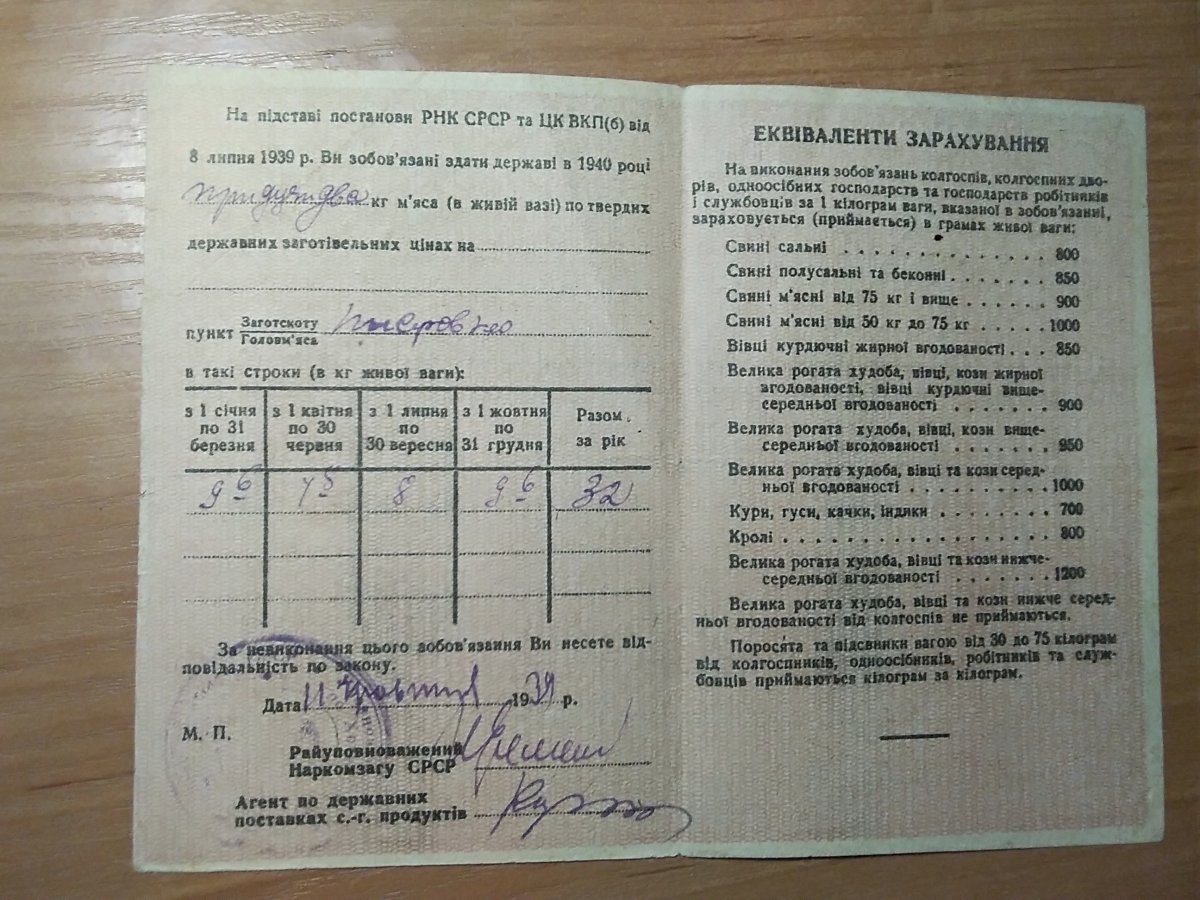 На підставі постанови РНК СРСР та ЦК ВКП(б) від
8 липня 1939 р. Ви зобов'язані здати державі в 1940 році
кг м'яса (в живій вазі) по твердих
державних заготівельних цінах на
пункт Заготскоту
Головм'яса
в такі строки (в кг живої ваги):
з 1 січня по 31 березня
з 1 квітня по 30 червня
з 1 липня по 30 вересня
з 1 жовтня по 31 грудня
Разом за рік
9 6 7 5 8 9 6 32
За невиконання цього зобов'язання Ви несете від-
повідальність по закону.
Дата 11 жовтня 1939 р.
М. П.
Райуповноважений
Наркомзагу СРСР
Агент по державних
поставках с.-г. продуктів
ЕКВІВАЛЕНТИ ЗАРАХУВАННЯ
На виконання зобов'язань колгоспів, колгоспних дво-
рів, одноосібних господарств та господарств робітників
і службовців за 1 кілограм ваги, вказаної в зобов'язанні,
зараховується (приймається) в грамах живої ваги:
Свині сальні . . . . . . . . . . . . 800
Свині полусальні та беконні . . . . . . . 850
Свині м'ясні від 75 кг і вище . . . . . . 900
Свині м'ясні від 50 кг до 75 кг . . . . . 1000
Вівці курдючні жирної вгодованості . . . 850
Велика рогата худоба, вівці, кози жирної
вгодованості, вівці курдючні вище-
середньої вгодованості . . . . . . . 900
Велика рогата худоба, вівці, кози вище-
середньої вгодованості . . . . . . . 950
Велика рогата худоба, вівці та кози серед-
ньої вгодованості . . . . . . . . . . 1000
Кури, гуси, качки, індики . . . . . . . . 700
Кролі . . . . . . . . . . . . . . . 800
Велика рогата худоба, вівці та кози нижче-
середньої вгодованості . . . . . . . 1200
Велика рогата худоба, вівці та кози нижче серед-
ньої вгодованості від колгоспів не приймаються.
Поросята та підсвинки вагою від 30 до 75 кілограм
від колгоспників, одноосібників, робітників та служ-
бовців приймаються кілограм за кілограм.